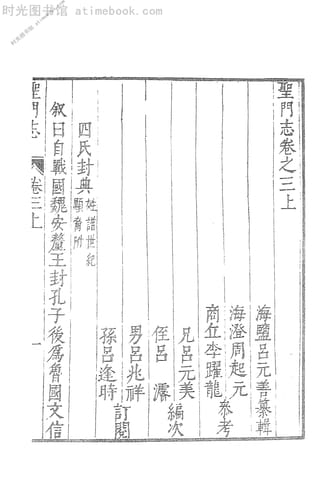 时光图书馆 atimebook.com
时光图书馆
聖門志卷之三上
海鹽呂元善纂輯
海澄周起元
商丘李躍龍
叅考
兄呂元美
侄呂濬
編次
男呂兆祥
孫呂逢時
訂閱
四氏封典
姓譜世紀
顯裔附
叙曰自戰國魏安釐王封孔子後爲魯國文信
聖門志
卷三上
一
时光图书馆 atimebook.com